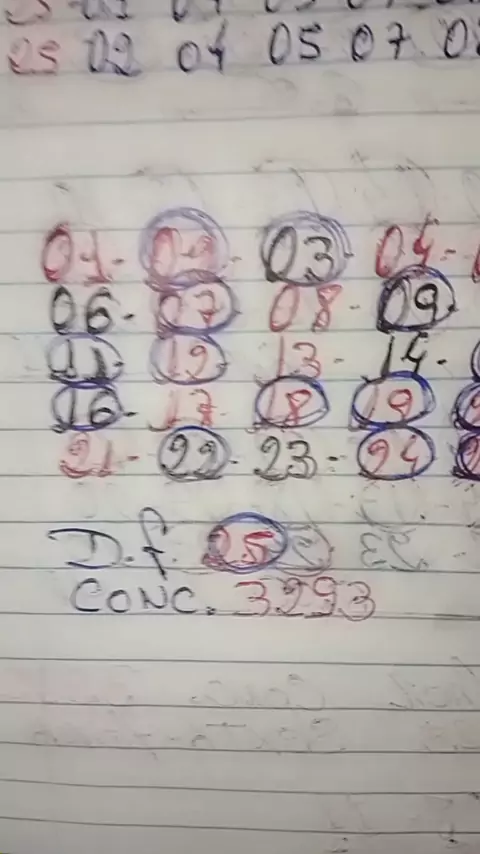 25 02 04 05 07 08
01- 02- 03 04-
06- 07 08- 09
11- 12 13- 14-
16- 17- 18 19
21- 22- 23- 24
D.f. 25
CONC. 3293